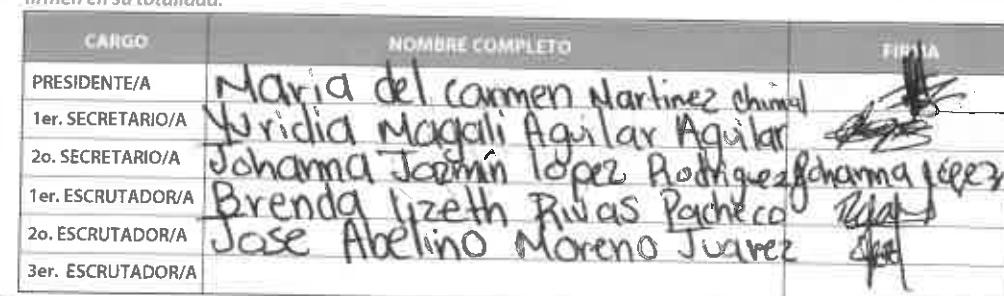 firmen en su totalidad.
CARGO NOMBRE COMPLETO FIRMA
PRESIDENTE/A Maria del carmen Martinez chimal
1er. SECRETARIO/A Yuridia Magali Aguilar Aguilar
2o. SECRETARIO/A Johanna Jazmín lópez Rodriguez Johanna lópez
1er. ESCRUTADOR/A Brenda lizeth Rivas Pacheco
2o. ESCRUTADOR/A Jose Abelino Moreno Juarez
3er. ESCRUTADOR/A